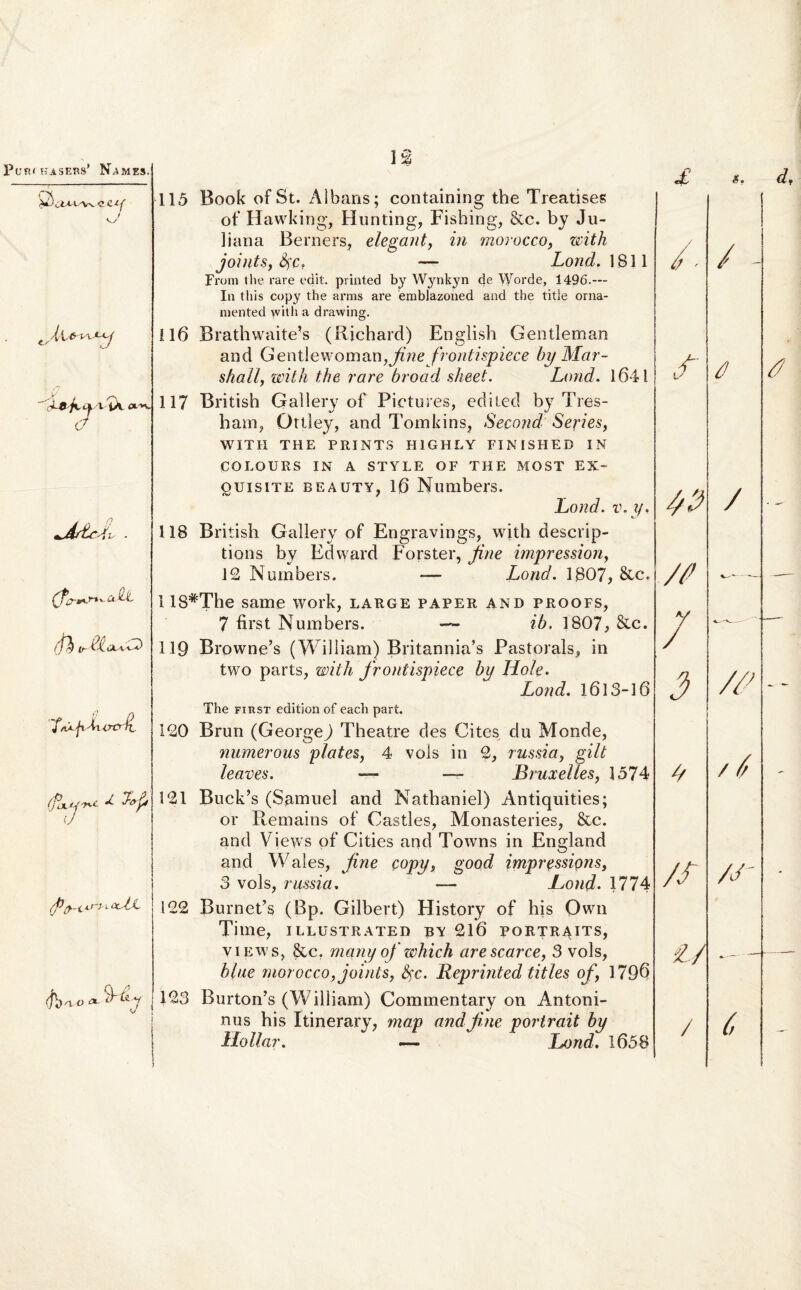 12
Purchasers' Names.
£ s. d.
115 Book of St. Albans; containing the Treatises
of Hawking, Hunting, Fishing, &c. by Ju-
liana Berners, elegant, in morocco, with
joints, &c. — Lond. 1811
6 . / -
From the rare edit. printed by Wynkyn de Worde, 1496.—
In this copy the arms are emblazoned and the title orna-
mented with a drawing.
116 Brathwaite's (Richard) English Gentleman
and Gentlewoman, fine frontispiece by Mar-
shall, with the rare broad sheet. Lond. 1641
5 0 0
117 British Gallery of Pictures, edited by Tres-
ham, Ottley, and Tomkins, Second Series,
WITH THE PRINTS HIGHLY FINISHED IN
COLOURS IN A STYLE OF THE MOST EX-
QUISITE BEAUTY, 16 Numbers.
Lond. v. y.
43 / -
118 British Gallery of Engravings, with descrip-
tions by Edward Forster, fine impression,
12 Numbers. — Lond. 1807, &c.
10 — —
118*The same work, LARGE PAPER AND PROOFS,
7 first Numbers. — ib. 1807, &c.
7 — —
119 Browne's (William) Britannia's Pastorals, in
two parts, with frontispiece by Hole.
Lond. 1613-16
3 10 -
The FIRST edition of each part.
120 Brun (George) Theatre des Cites du Monde,
numerous plates, 4 vols in 2, russia, gilt
leaves. — — Bruxelles, 1574
4 16 -
121 Buck's (Samuel and Nathaniel) Antiquities;
or Remains of Castles, Monasteries, &c.
and Views of Cities and Towns in England
and Wales, fine copy, good impressions,
3 vols, russia. — Lond. 1774
15 15 -
122 Burnet's (Bp. Gilbert) History of his Own
Time, ILLUSTRATED BY 216 PORTRAITS,
VIEWS, &c. many of which are scarce, 3 vols,
blue morocco, joints, &c. Reprinted titles of, 1796
21 — —
123 Burton's (William) Commentary on Antoni-
nus his Itinerary, map and fine portrait by
Hollar. — Lond. 1658
/ 6 -